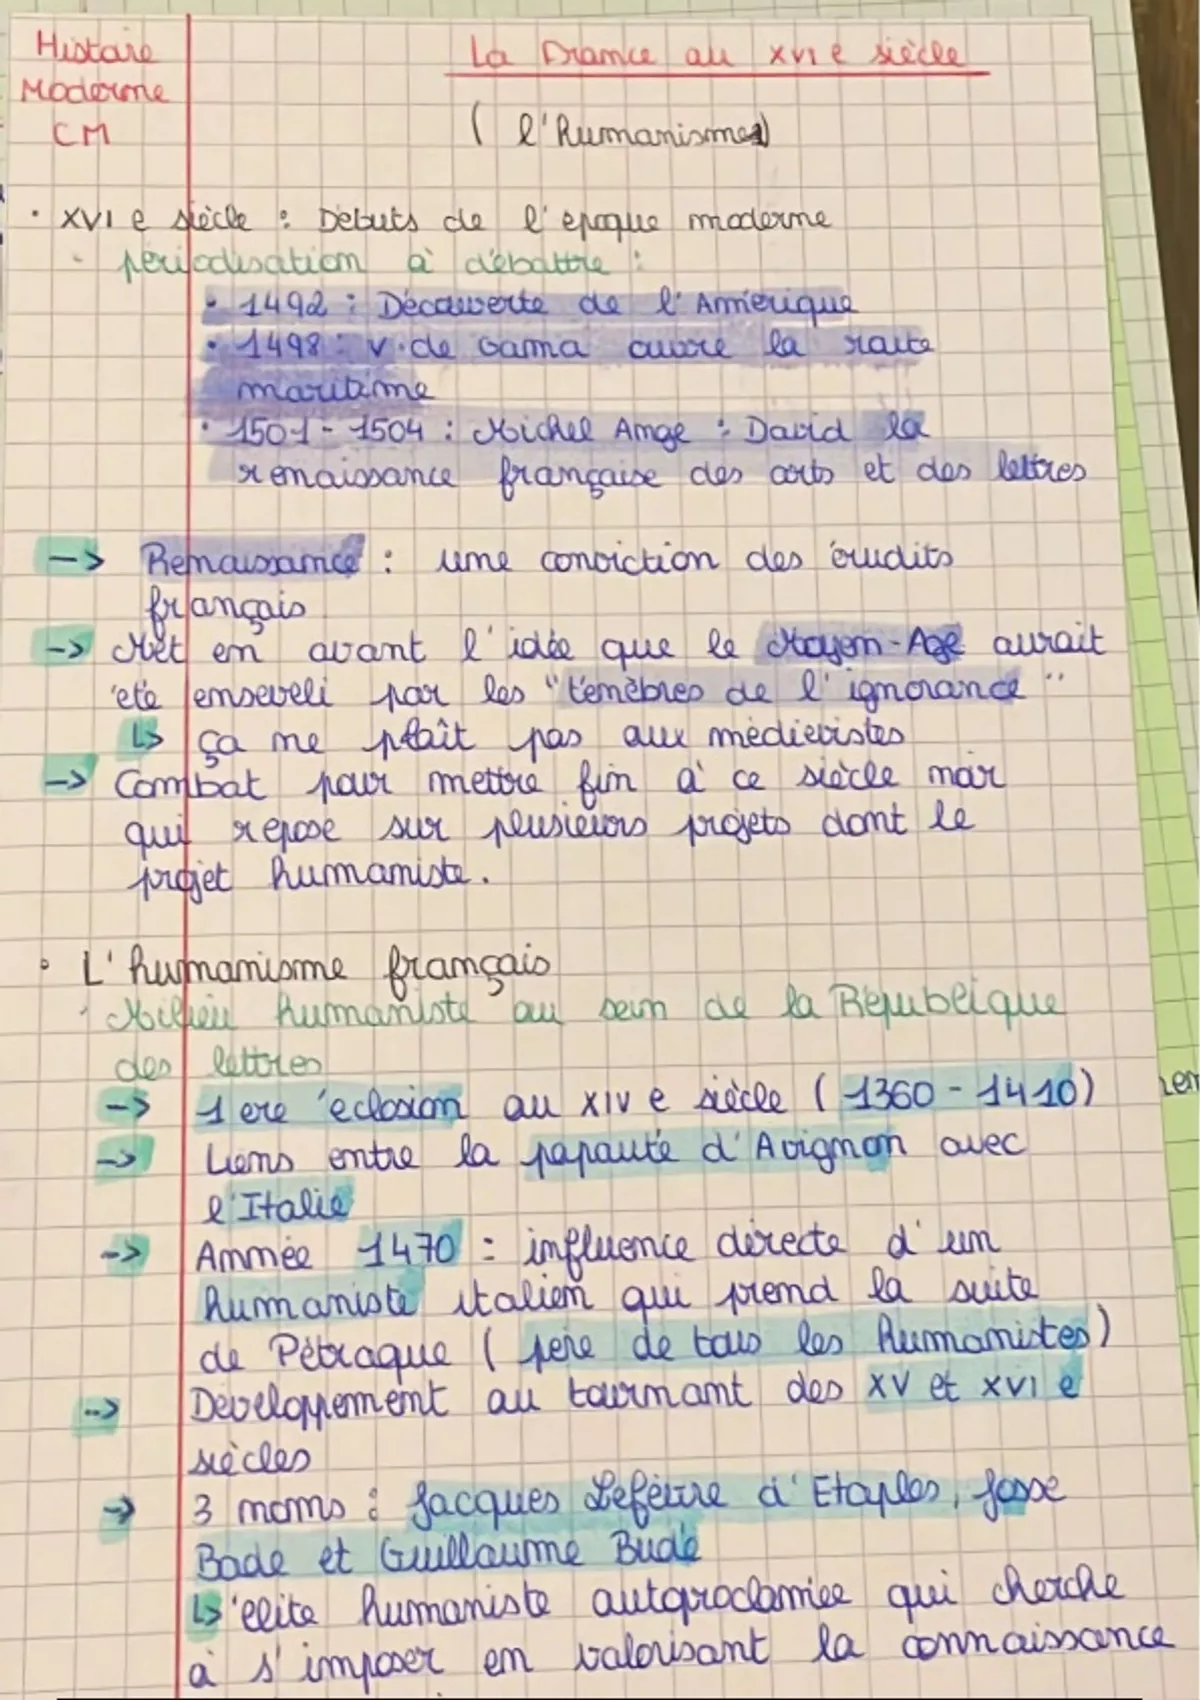 Histoire
Moderne
CM
La France au XVIe siècle
( l'humanisme)
• XVI e siècle : Débuts de l'époque moderne
- périodisation à débattre :
• 1492 : Découverte de l'Amérique
• 1498 : V. de Gama ouvre la route
maritime
• 1501 - 1504 : Michel Ange : David la
renaissance française des arts et des lettres
-> Renaissance : une conviction des érudits
français
-> Met en avant l'idée que le Moyen-Age aurait
été enseveli par les "ténèbres de l'ignorance"
↳ ça ne plaît pas aux médiévistes
-> Combat pour mettre fin à ce siècle noir
qui repose sur plusieurs projets dont le
projet humaniste.
• L'humanisme français
- Milieu humaniste au sein de la République
des lettres
-> 1 ère éclosion au XIV e siècle ( 1360 - 1410)
-> Liens entre la papauté d'Avignon avec
l'Italie
-> Année 1470 : influence directe d'un
humaniste italien qui prend la suite
de Pétraque ( père de tous les humanistes)
--> Développement au tournant des XV et XVI e
siècles
-> 3 noms : Jacques Lefèvre d'Etaples, Josse
Bade et Guillaume Budé
↳ élite humaniste autoproclamée qui cherche
à s'imposer en valorisant la connaissance